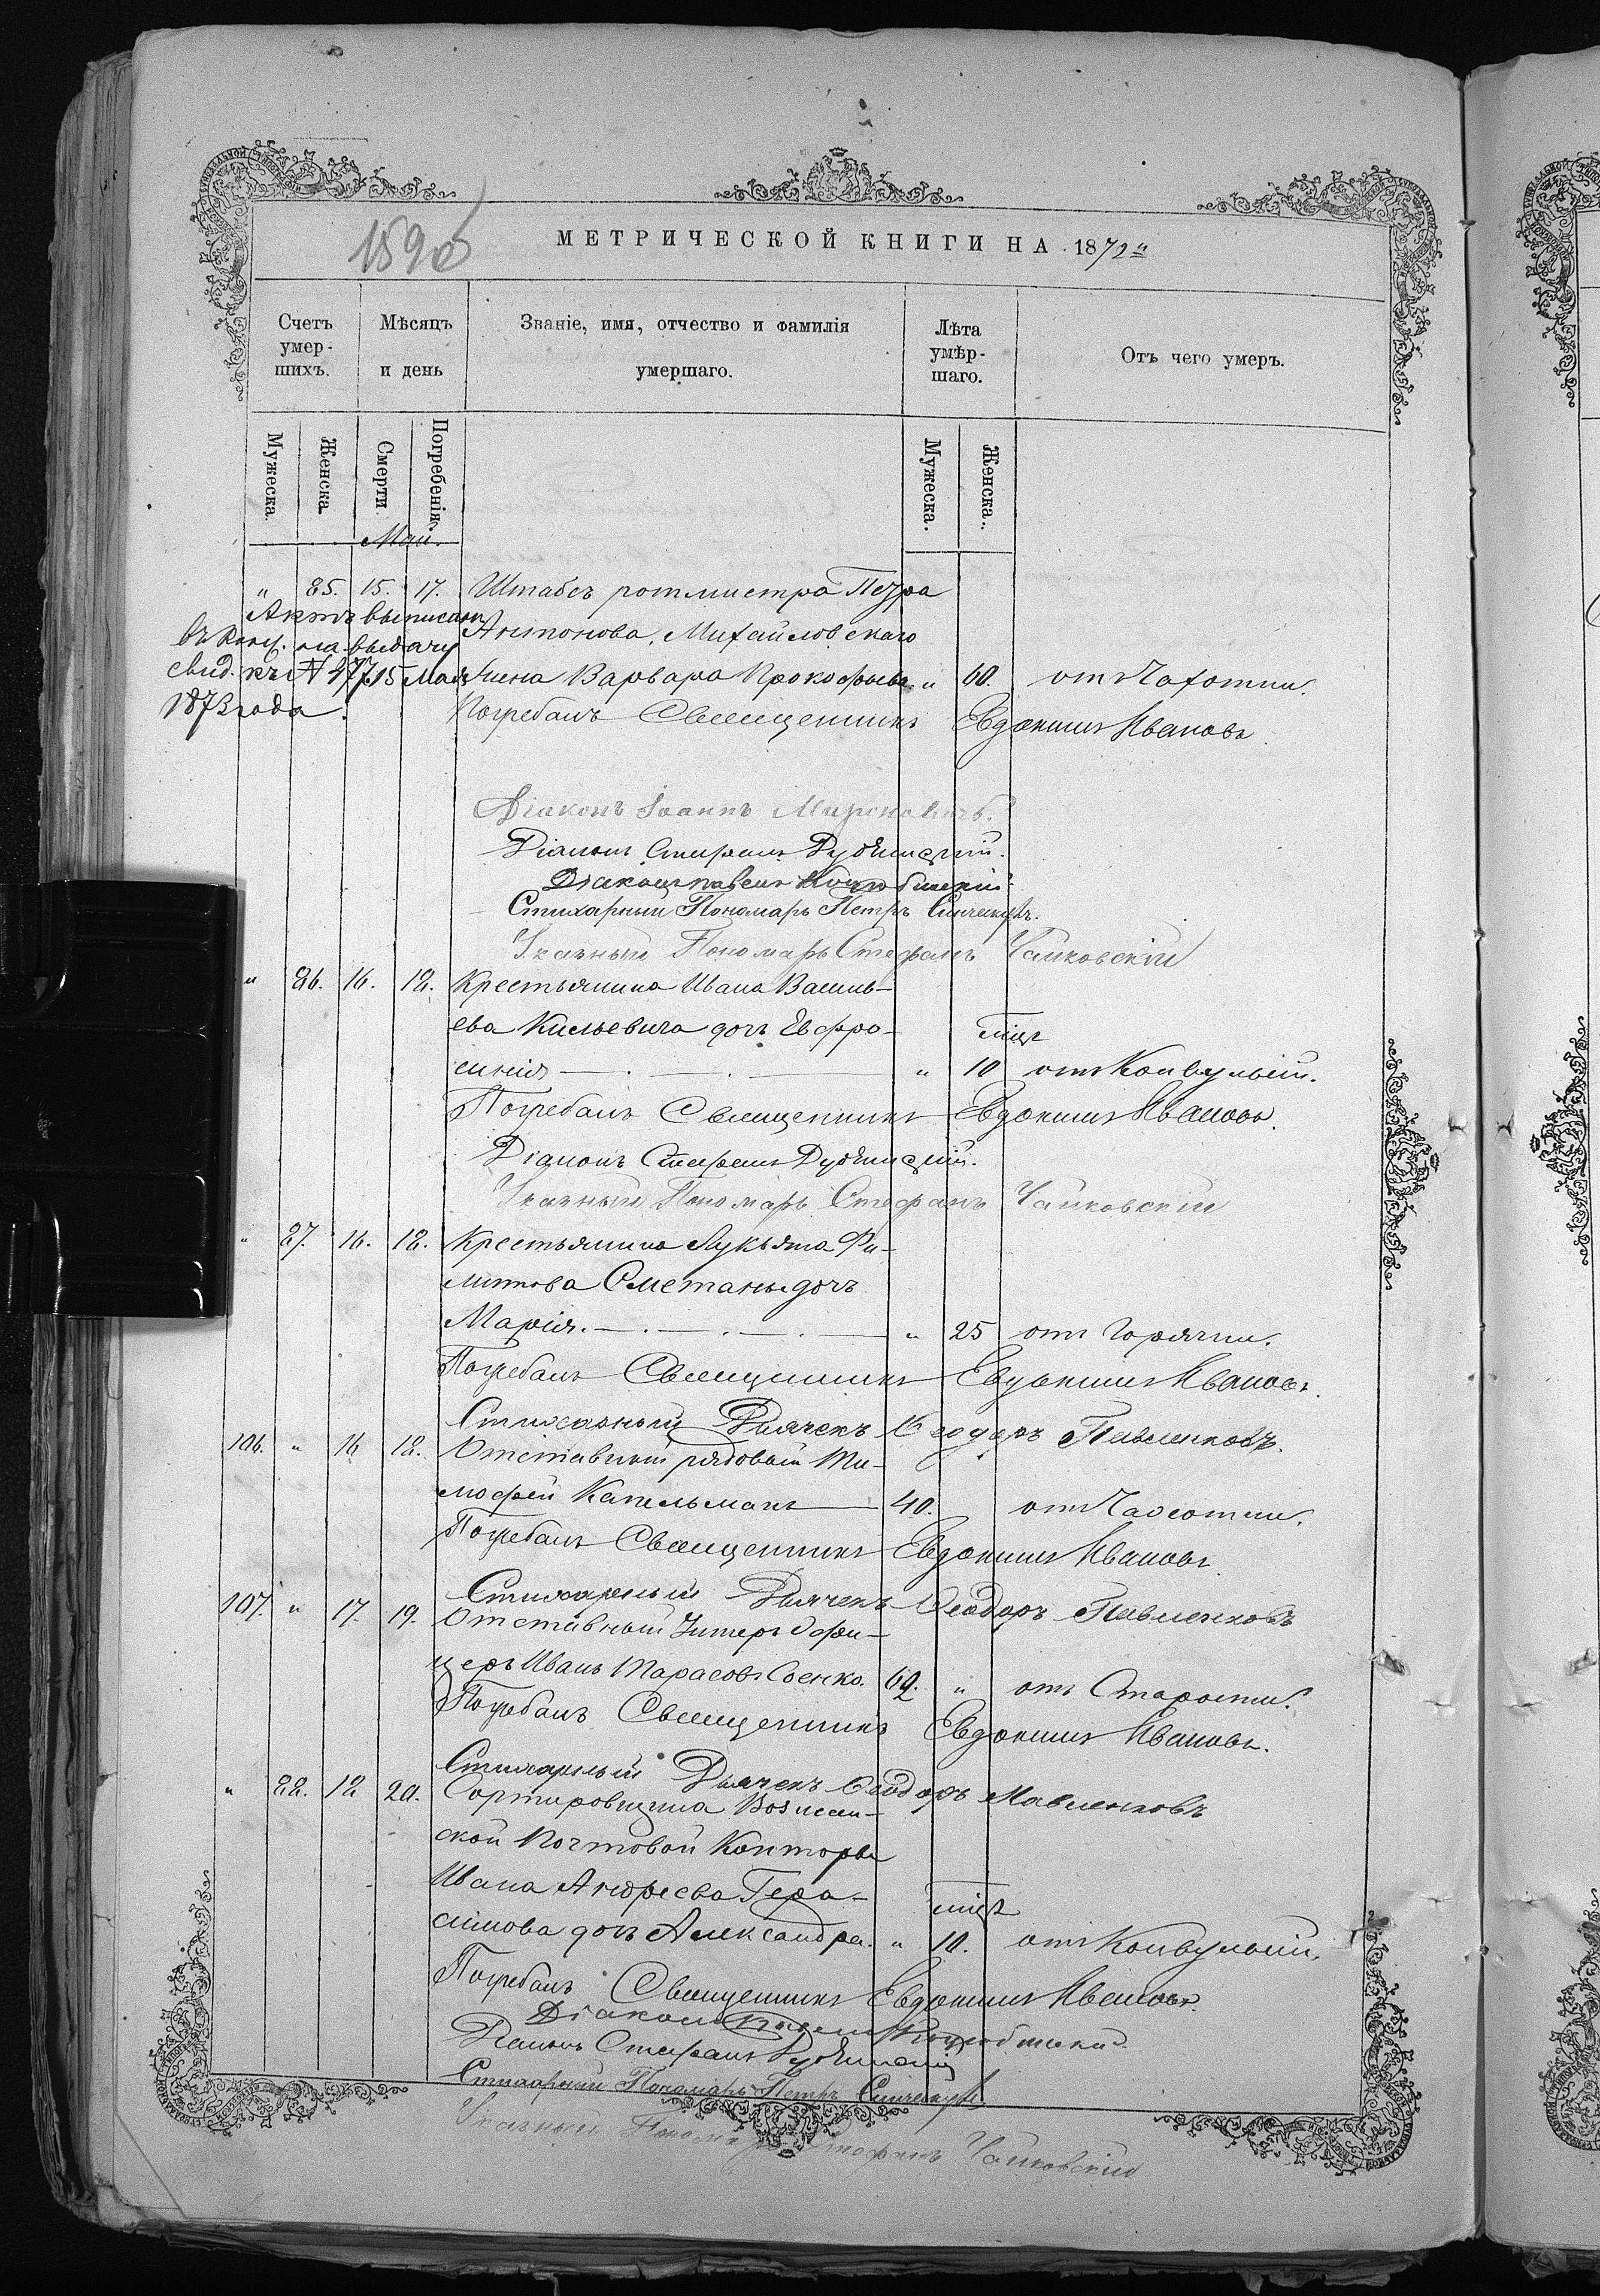 1890
МЕТРИЧЕСКОЙ КНИГИ НА 1872й
Счетъ умер-шихъ.
Мѣсяцъ и день
Званіе, имя, отчество и фамилія умершаго.
Лѣта умѣр-шаго.
Отъ чего умеръ.
Мужеска.
Женска
Смерти.
Погребенія.
Мужеска.
Женска.
Май.
" 85. 15. 17. Штабсъ ротмистра Петра
Антонова Михайловскаго
жена Варвара Прокофьева " 60. отъ Чахотки.
Актъ выписанъ
въ на выдачу
свид. къ № 477 15 Мая
1873 года.
Погребалъ Священникъ Евдокимъ Ивановъ.
Діаконъ Іоаннъ Мироновичъ.
Діаконъ Стефанъ
Діаконъ Павелъ
Стихарный Пономарь Петръ
Указный Пономарь Стефанъ Чайковскій
" 86. 16. 18. Крестьянина Ивана Василь-
ева Кильевича дочь Евфро-
мцъ
синія " 10 отъ Конвульсій.
Погребалъ Священникъ Евдокимъ Ивановъ.
Діаконъ Стефанъ
Указный Пономарь Стефанъ Чайковскій
" 87. 16. 18. Крестьянина Лукьяна Фи-
липова Сметаны дочь
Марія. " 25 отъ Горячки.
Погребалъ Священникъ Евдокимъ Ивановъ.
Стихарный Дьячекъ Ѳеодоръ Павленковъ.
106. " 16 18. Отставный рядовый Ти-
мофей Капельманъ 40. отъ Чахотки.
Погребалъ Священникъ Евдокимъ Ивановъ.
Стихарный Дьячекъ Ѳеодоръ Павленковъ
107. " 17. 19. Отставный Унтеръ Офи-
церъ Иванъ Тарасовъ Соенко. 62. " отъ Старости.
Погребалъ Священникъ Евдокимъ Ивановъ.
Стихарный Дьячекъ Ѳеодоръ Павленковъ
" 88. 18 20. Сортировщика Вознесен-
ской Почтовой Конторы
Ивана Андреева Гера-
мцъ
симова дочь Александра. " 10. отъ Конвульсій.
Погребалъ Священникъ Евдокимъ Ивановъ.
Діаконъ Павелъ
Діаконъ Стефанъ
Стихарный Пономарь Петръ
Указный Пономарь Стефанъ Чайковскій